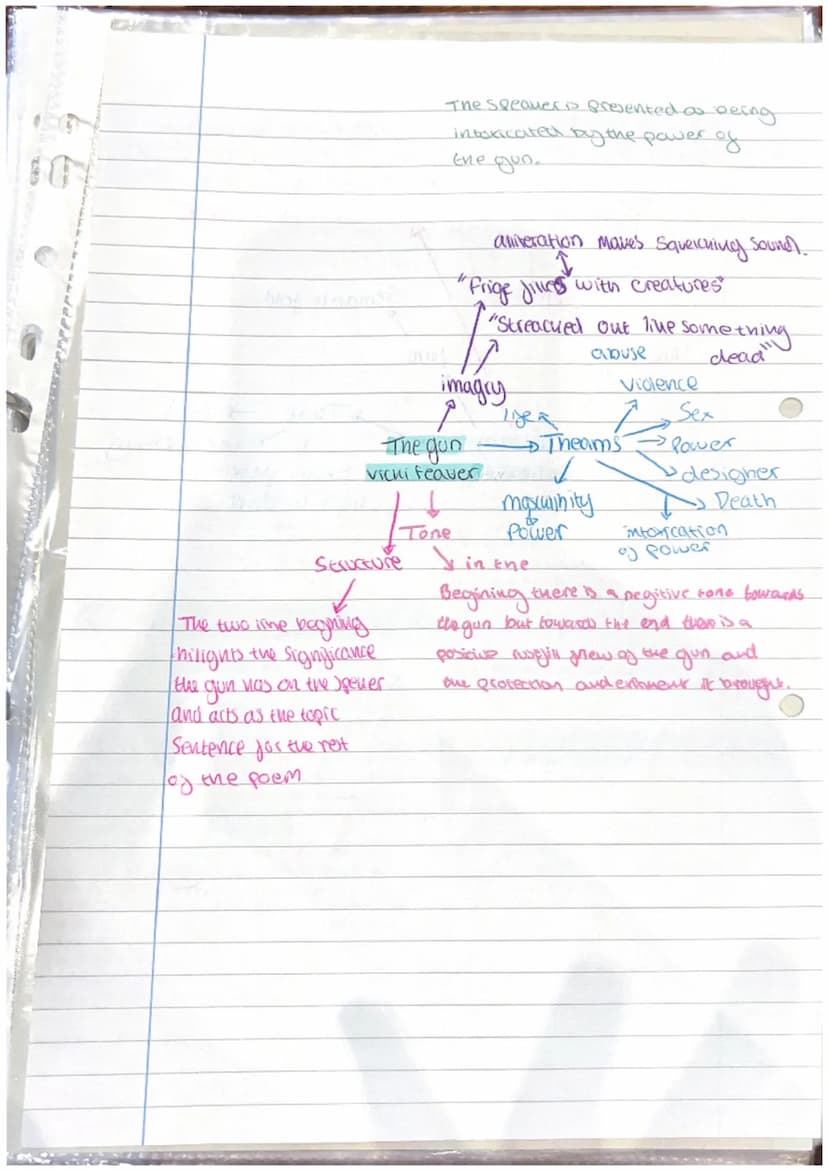 The speaker is presented as being
intoxicated by the power of
the gun.
aliteration makes squelching sound.
"Frige fills with creatures"
"Streached out like something
dead"
abuse
imagry
violence
life
Sex
The gun
Theams
Power
vicki feaver
designer
masculinity
Death
Power
intoxication
of power
Tone
Structure
in the
Begining there is a negitive tone towards
the gun but towards the end there is a
positive view of the gun and
the protection and it brought.
The two line begining
hilights the significance
the gun has on the speaker
and acts as the topic
Sentence for the rest
of the poem